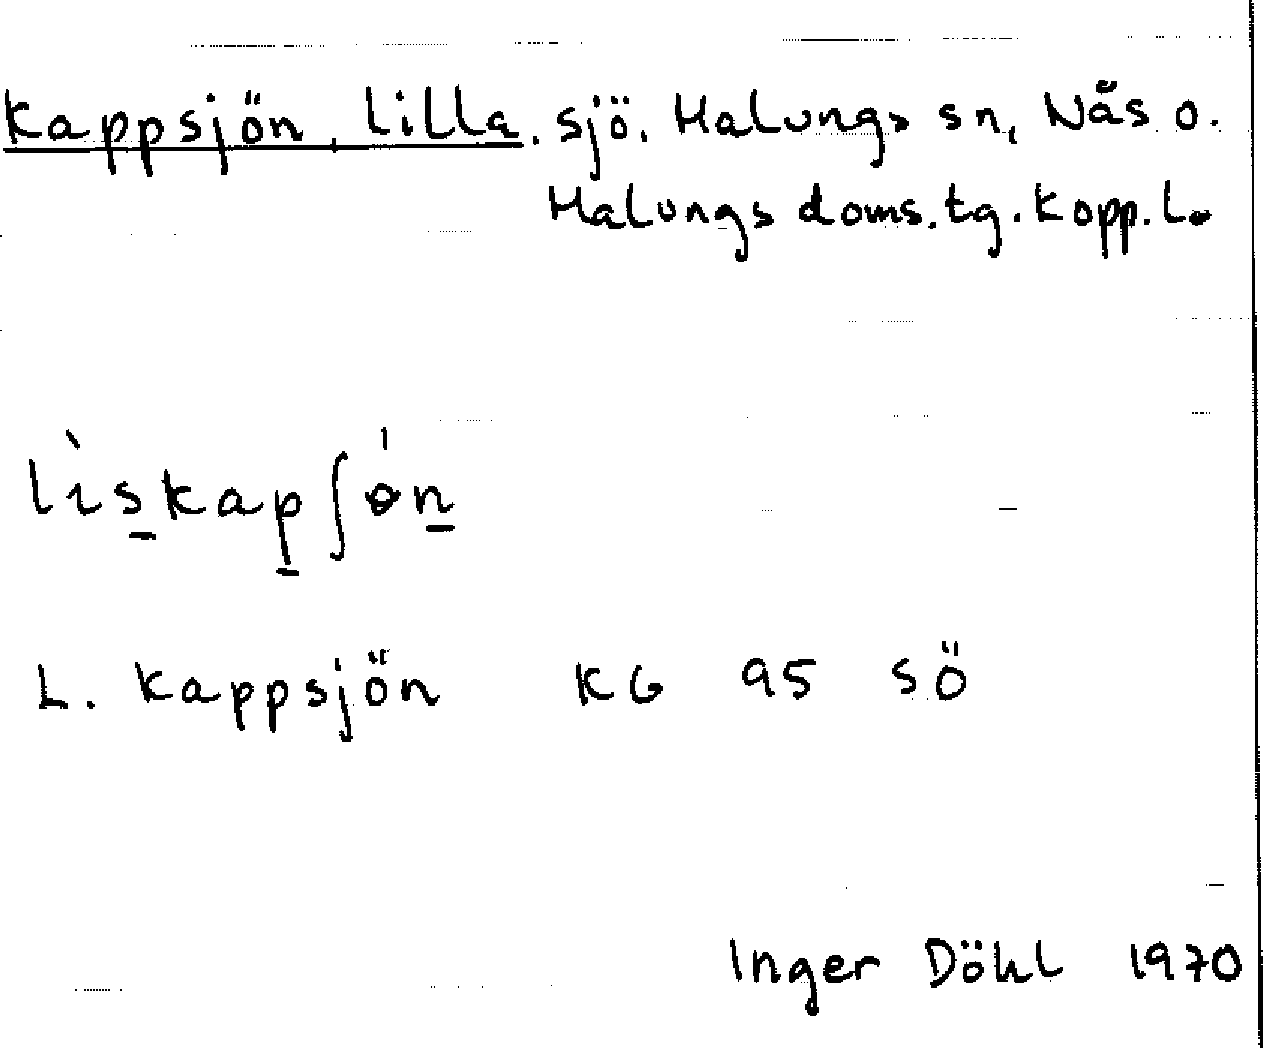 Kappsjön, Lilla. sjö. Malungs sn, Näs o.
Malungs doms.tg. Kopp. L.
lìskapʃó̵n
L. Kappsjön KG 95 SÖ
Inger Döhl 1970